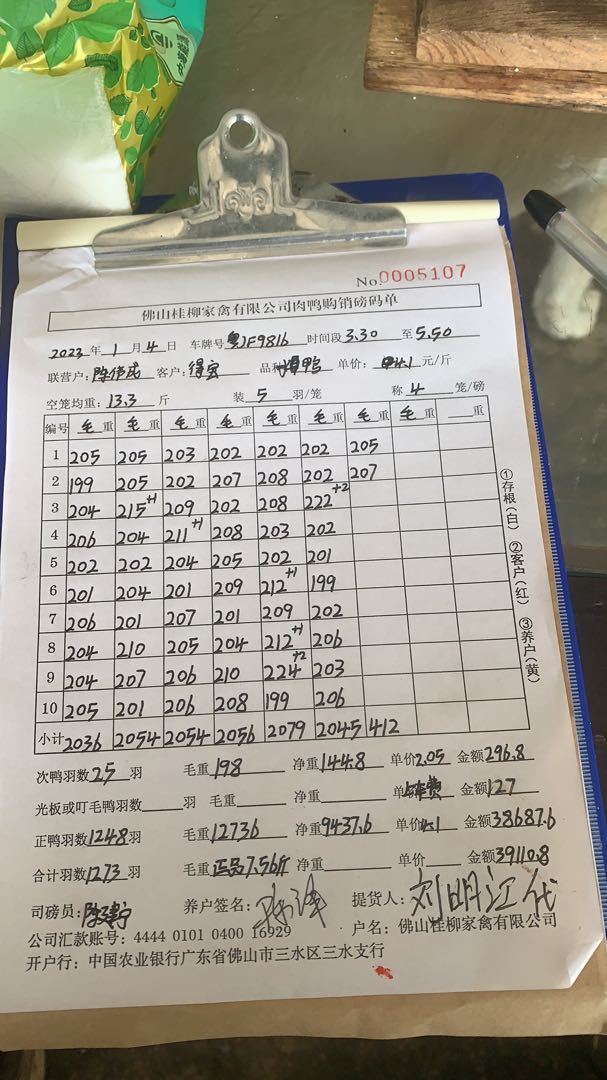 No.0005107
佛山桂柳家禽有限公司肉鸭购销磅码单
2023年1月4日 车牌号粤JF9816 时间段3.30至5.50
联营户:陈伟成 客户:得宝 品种 鸭 单价:4.1元/斤
空笼均重:13.3斤 装5羽/笼 称4笼/磅
编号 毛重 毛重 毛重 毛重 毛重 毛重 毛重 毛重 重
1 205 205 203 202 202 202 205
2 199 205 202 207 208 202 207
3 204 215+1 209 202 208 222+2
4 206 204 211+1 208 203 202
5 202 202 204 205 202 201
6 201 204 201 209 212+1 199
7 206 201 207 201 209 202
8 204 210 205 204 212+1 206
9 204 207 206 210 224+2 203
10 205 201 206 208 199 206
小计 2036 2054 2054 2056 2079 2045 412
①存根(白) ②客户(红) ③养户(黄)
次鸭羽数25羽 毛重198 净重144.8 单价2.05 金额296.8
光板或叮毛鸭羽数 羽 毛重 净重 单 车费 金额127
正鸭羽数1248羽 毛重12736 净重9437.6 单价4.1 金额38687.6
合计羽数1273羽 毛重正品7.56斤 净重 单价 金额39110.8
司磅员: 养户签名: 提货人:刘明江代
公司汇款账号:4444 0101 0400 16929 户名:佛山桂柳家禽有限公司
开户行:中国农业银行广东省佛山市三水区三水支行